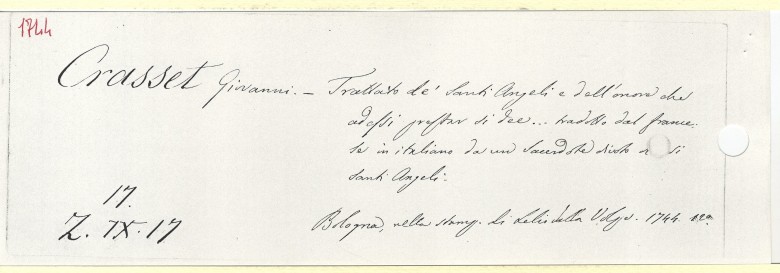 1744
Crasset Giovanni. – Trattato de' Santi Angeli e dell'onore che
ad essi prestar si dee... tradotto dal france-
se in italiano da un Sacerdote divoto di si
Santi Angeli.
17.
Z. IX. 17
Bologna, nella stamp. di Lelio dalla Volpe. 1744. 12º